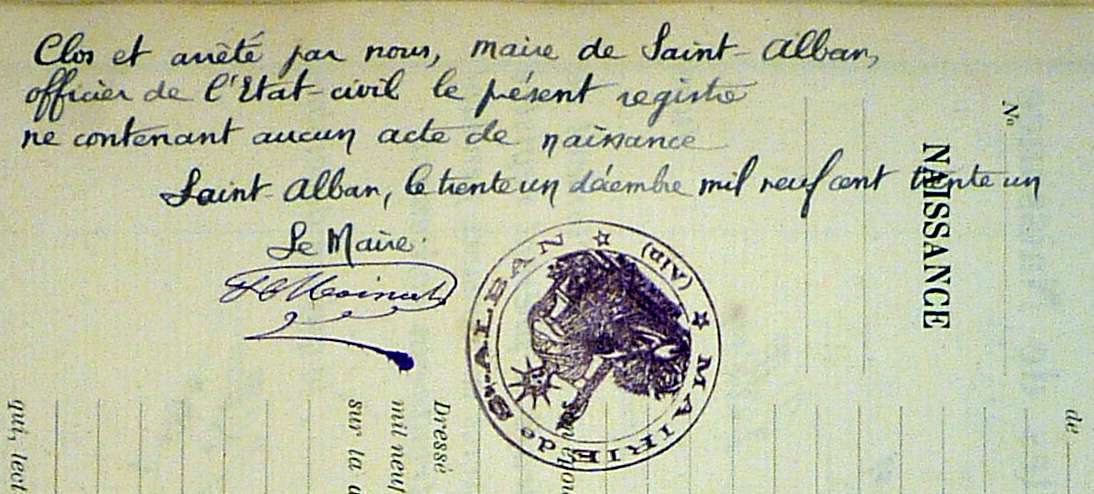 Clos et arrêté par nous, maire de Saint-Alban,
officier de l'Etat-civil le présent registre
ne contenant aucun acte de naissance
Saint-Alban, le trente un décembre mil neuf cent trente un
Le Maire.
MAIRIE de St-ALBAN
(AIN)
N°
NAISSANCE
de
Dressé
mil neuf
sur la
qui, lect